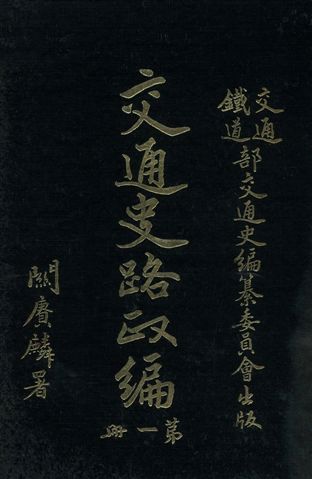 交通
鐵道
部交通史編纂委員會出版
交通史路政編
第一册
關賡麟署